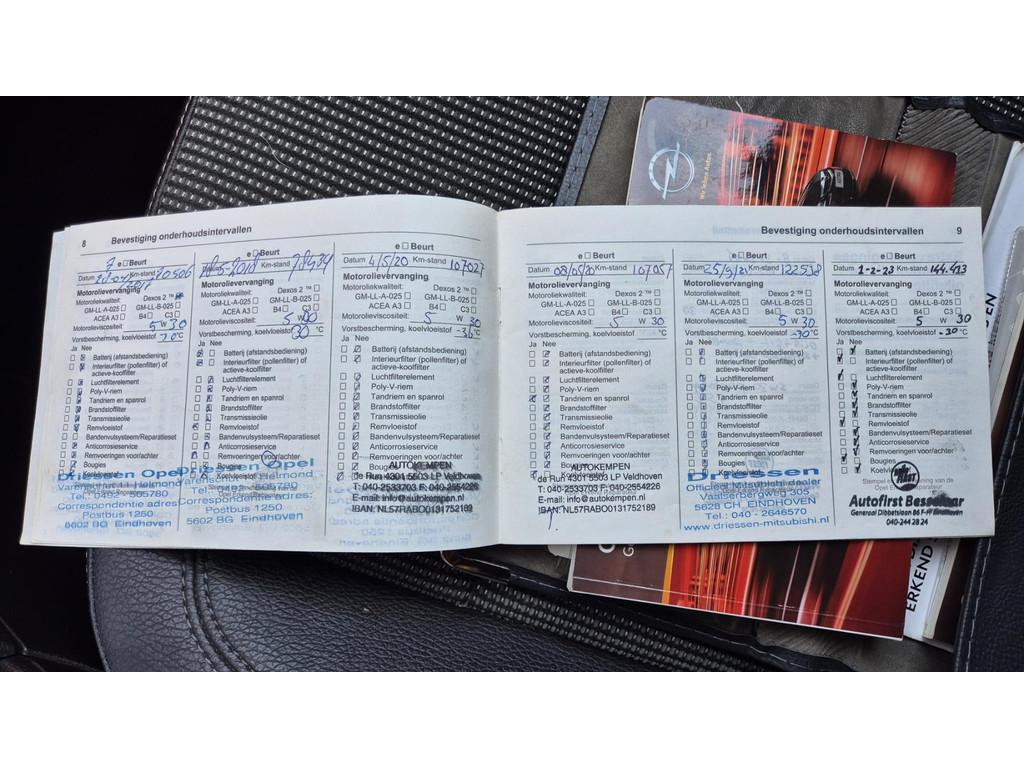 8 Bevestiging onderhoudsintervallen
7
e □ Beurt
Datum Km-stand 70506
Motorolievervanging
Motorolekwaliteit: Dexos 2 ™
GM-LL-A-025 □ GM-LL-B-025 □
ACEA A3 □ B4 □ C3 □
Motorolieviscositeit: 5 W 30
Vorstbescherming, koelvloeistof °C
Ja Nee
Batterij (afstandsbediening)
Interieurfilter (pollenfilter) of
actieve-koolfilter
Luchtfilterelement
Poly-V-riem
Tandriem en spanrol
Brandstoffilter
Transmissieolie
Remvloeistof
Bandenvulsysteem/Reparatieset
Anticorrosieservice
Remvoeringen voor/achter
Bougies
Driessen Opel
Correspondentie adres:
Postbus 1250
5602 BG Eindhoven
e □ Beurt
Km-stand 78434
Motorolievervanging
Motoroliekwaliteit: Dexos 2 ™ □
GM-LL-A-025 □ GM-LL-B-025 □
ACEA A3 □ B4 □ C3 □
Motorolieviscositeit: 5 W 30
Vorstbescherming, koelvloeistof 30 °C
Ja Nee
Batterij (afstandsbediening)
Interieurfilter (pollenfilter) of
actieve-koolfilter
Luchtfilterelement
Poly-V-riem
Tandriem en spanrol
Brandstoffilter
Transmissieolie
Remvloeistof
Bandenvulsysteem/Reparatieset
Anticorrosieservice
Remvoeringen voor/achter
Bougies
Driessen Opel
Helmond
Correspondentie adres:
Postbus 1250
5602 BG Eindhoven
e □ Beurt
Datum 4/5/20 Km-stand 107027
Motorolievervanging
Motoroliekwaliteit: Dexos 2 ™ □
GM-LL-A-025 □ GM-LL-B-025 □
ACEA A3 □ B4 □ C3 □
Motorolieviscositeit: 5 W 30
Vorstbescherming, koelvloeistof -36 °C
Ja Nee
Batterij (afstandsbediening)
Interieurfilter (pollenfilter) of
actieve-koolfilter
Luchtfilterelement
Poly-V-riem
Tandriem en spanrol
Brandstoffilter
Transmissieolie
Remvloeistof
Bandenvulsysteem/Reparatieset
Anticorrosieservice
Remvoeringen voor/achter
Bougies
AUTOKEMPEN
de Run 4301 5503 LP Veldhoven
T: 040-2533703 F: 040-2554226
E-mail: info@autokempen.nl
IBAN: NL57RABO0131752189
Bevestiging onderhoudsintervallen 9
e □ Beurt
Datum 08/05/20 Km-stand 107057
Motorolievervanging
Motoroliekwaliteit: Dexos 2 ™ □
GM-LL-A-025 □ GM-LL-B-025 □
ACEA A3 □ B4 □ C3 □
Motorolieviscositeit: 5 W 30
Vorstbescherming, koelvloeistof °C
Ja Nee
Batterij (afstandsbediening)
Interieurfilter (pollenfilter) of
actieve-koolfilter
Luchtfilterelement
Poly-V-riem
Tandriem en spanrol
Brandstoffilter
Transmissieolie
Remvloeistof
Bandenvulsysteem/Reparatieset
Anticorrosieservice
Remvoeringen voor/achter
Bougies
AUTOKEMPEN
de Run 4301 5503 LP Veldhoven
T: 040-2533703 F: 040-2554226
E-mail: info@autokempen.nl
IBAN: NL57RABO0131752189
e □ Beurt
Datum 25/9/21 Km-stand 122538
Motorolievervanging
Motoroliekwaliteit: Dexos 2 ™ □
GM-LL-A-025 □ GM-LL-B-025 □
ACEA A3 □ B4 □ C3 □
Motorolieviscositeit: 5 W 30
Vorstbescherming, koelvloeistof -30 °C
Ja Nee
Batterij (afstandsbediening)
Interieurfilter (pollenfilter) of
actieve-koolfilter
Luchtfilterelement
Poly-V-riem
Tandriem en spanrol
Brandstoffilter
Transmissieolie
Remvloeistof
Bandenvulsysteem/Reparatieset
Anticorrosieservice
Remvoeringen voor/achter
Bougies
Driessen
Officieel Mitsubishi dealer
Vaalserbergweg 305
5628 CH EINDHOVEN
Tel.: 040 - 2646570
www.driessen-mitsubishi.nl
e □ Beurt
Datum 1-2-23 Km-stand 144.413
Motorolievervanging
Motoroliekwaliteit: Dexos 2 ™ □
GM-LL-A-025 □ GM-LL-B-025 □
ACEA A3 □ B4 □ C3 □
Motorolieviscositeit: 5 W 30
Vorstbescherming, koelvloeistof -30 °C
Ja Nee
Batterij (afstandsbediening)
Interieurfilter (pollenfilter) of
actieve-koolfilter
Luchtfilterelement
Poly-V-riem
Tandriem en spanrol
Brandstoffilter
Transmissieolie
Remvloeistof
Bandenvulsysteem/Reparatieset
Anticorrosieservice
Remvoeringen voor/achter
Bougies
Koelvloeistof
Autofirst
Generaal Dibbetslaan Eindhoven
040-244 28 24
Wir leben Autos.
ERKEND